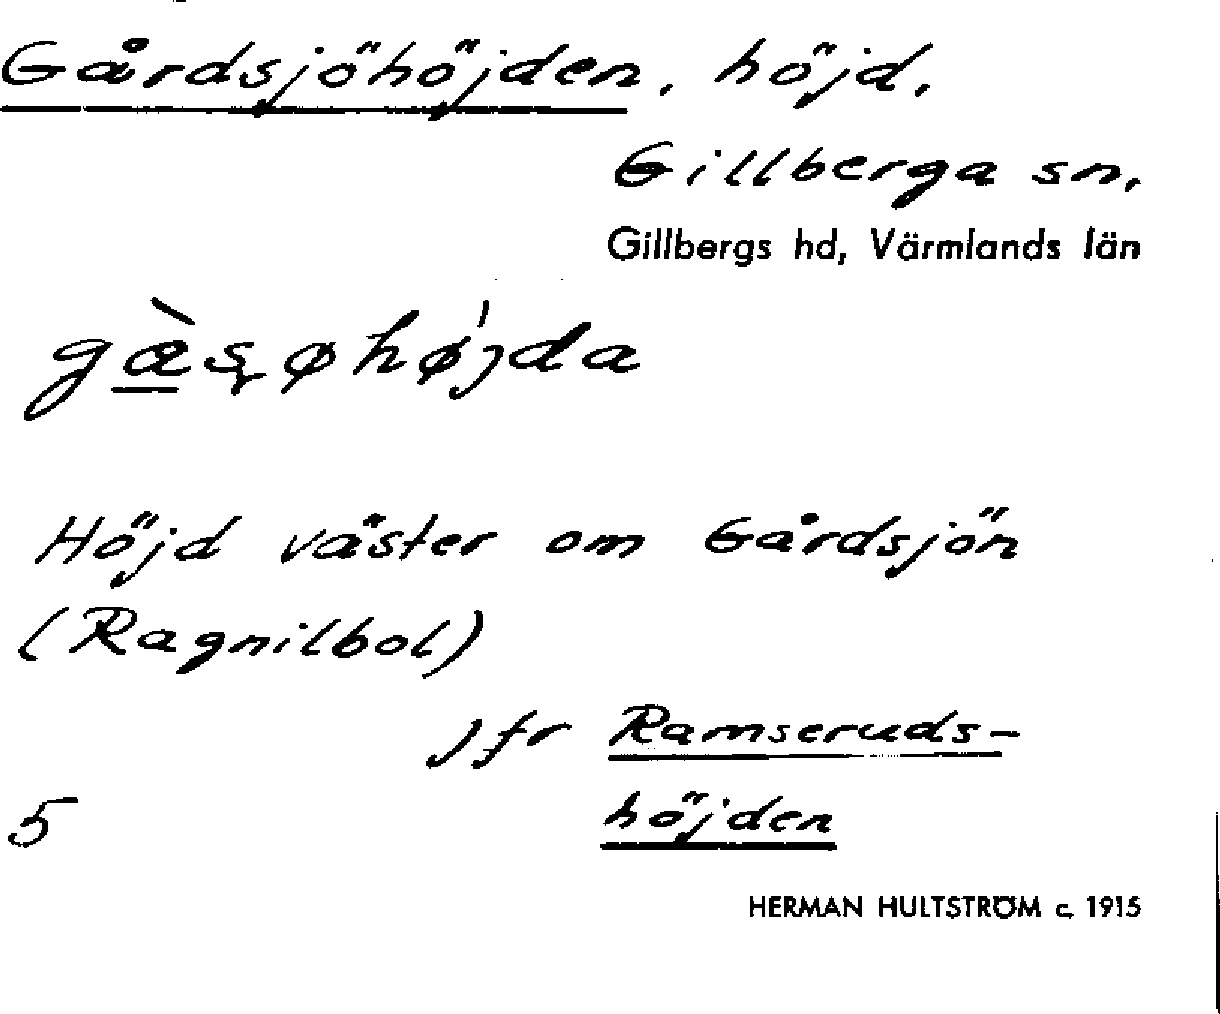 Gårdsjöhöjden, höjd.
Gillberga sn,
Gillbergs hd, Värmlands län
gæ̠̀ʂøhø̍jda
Höjd väster om Gårdsjön
(Ragnilbol)
Jfr Ramseruds-
höjden
5
HERMAN HULTSTRÖM c. 1915